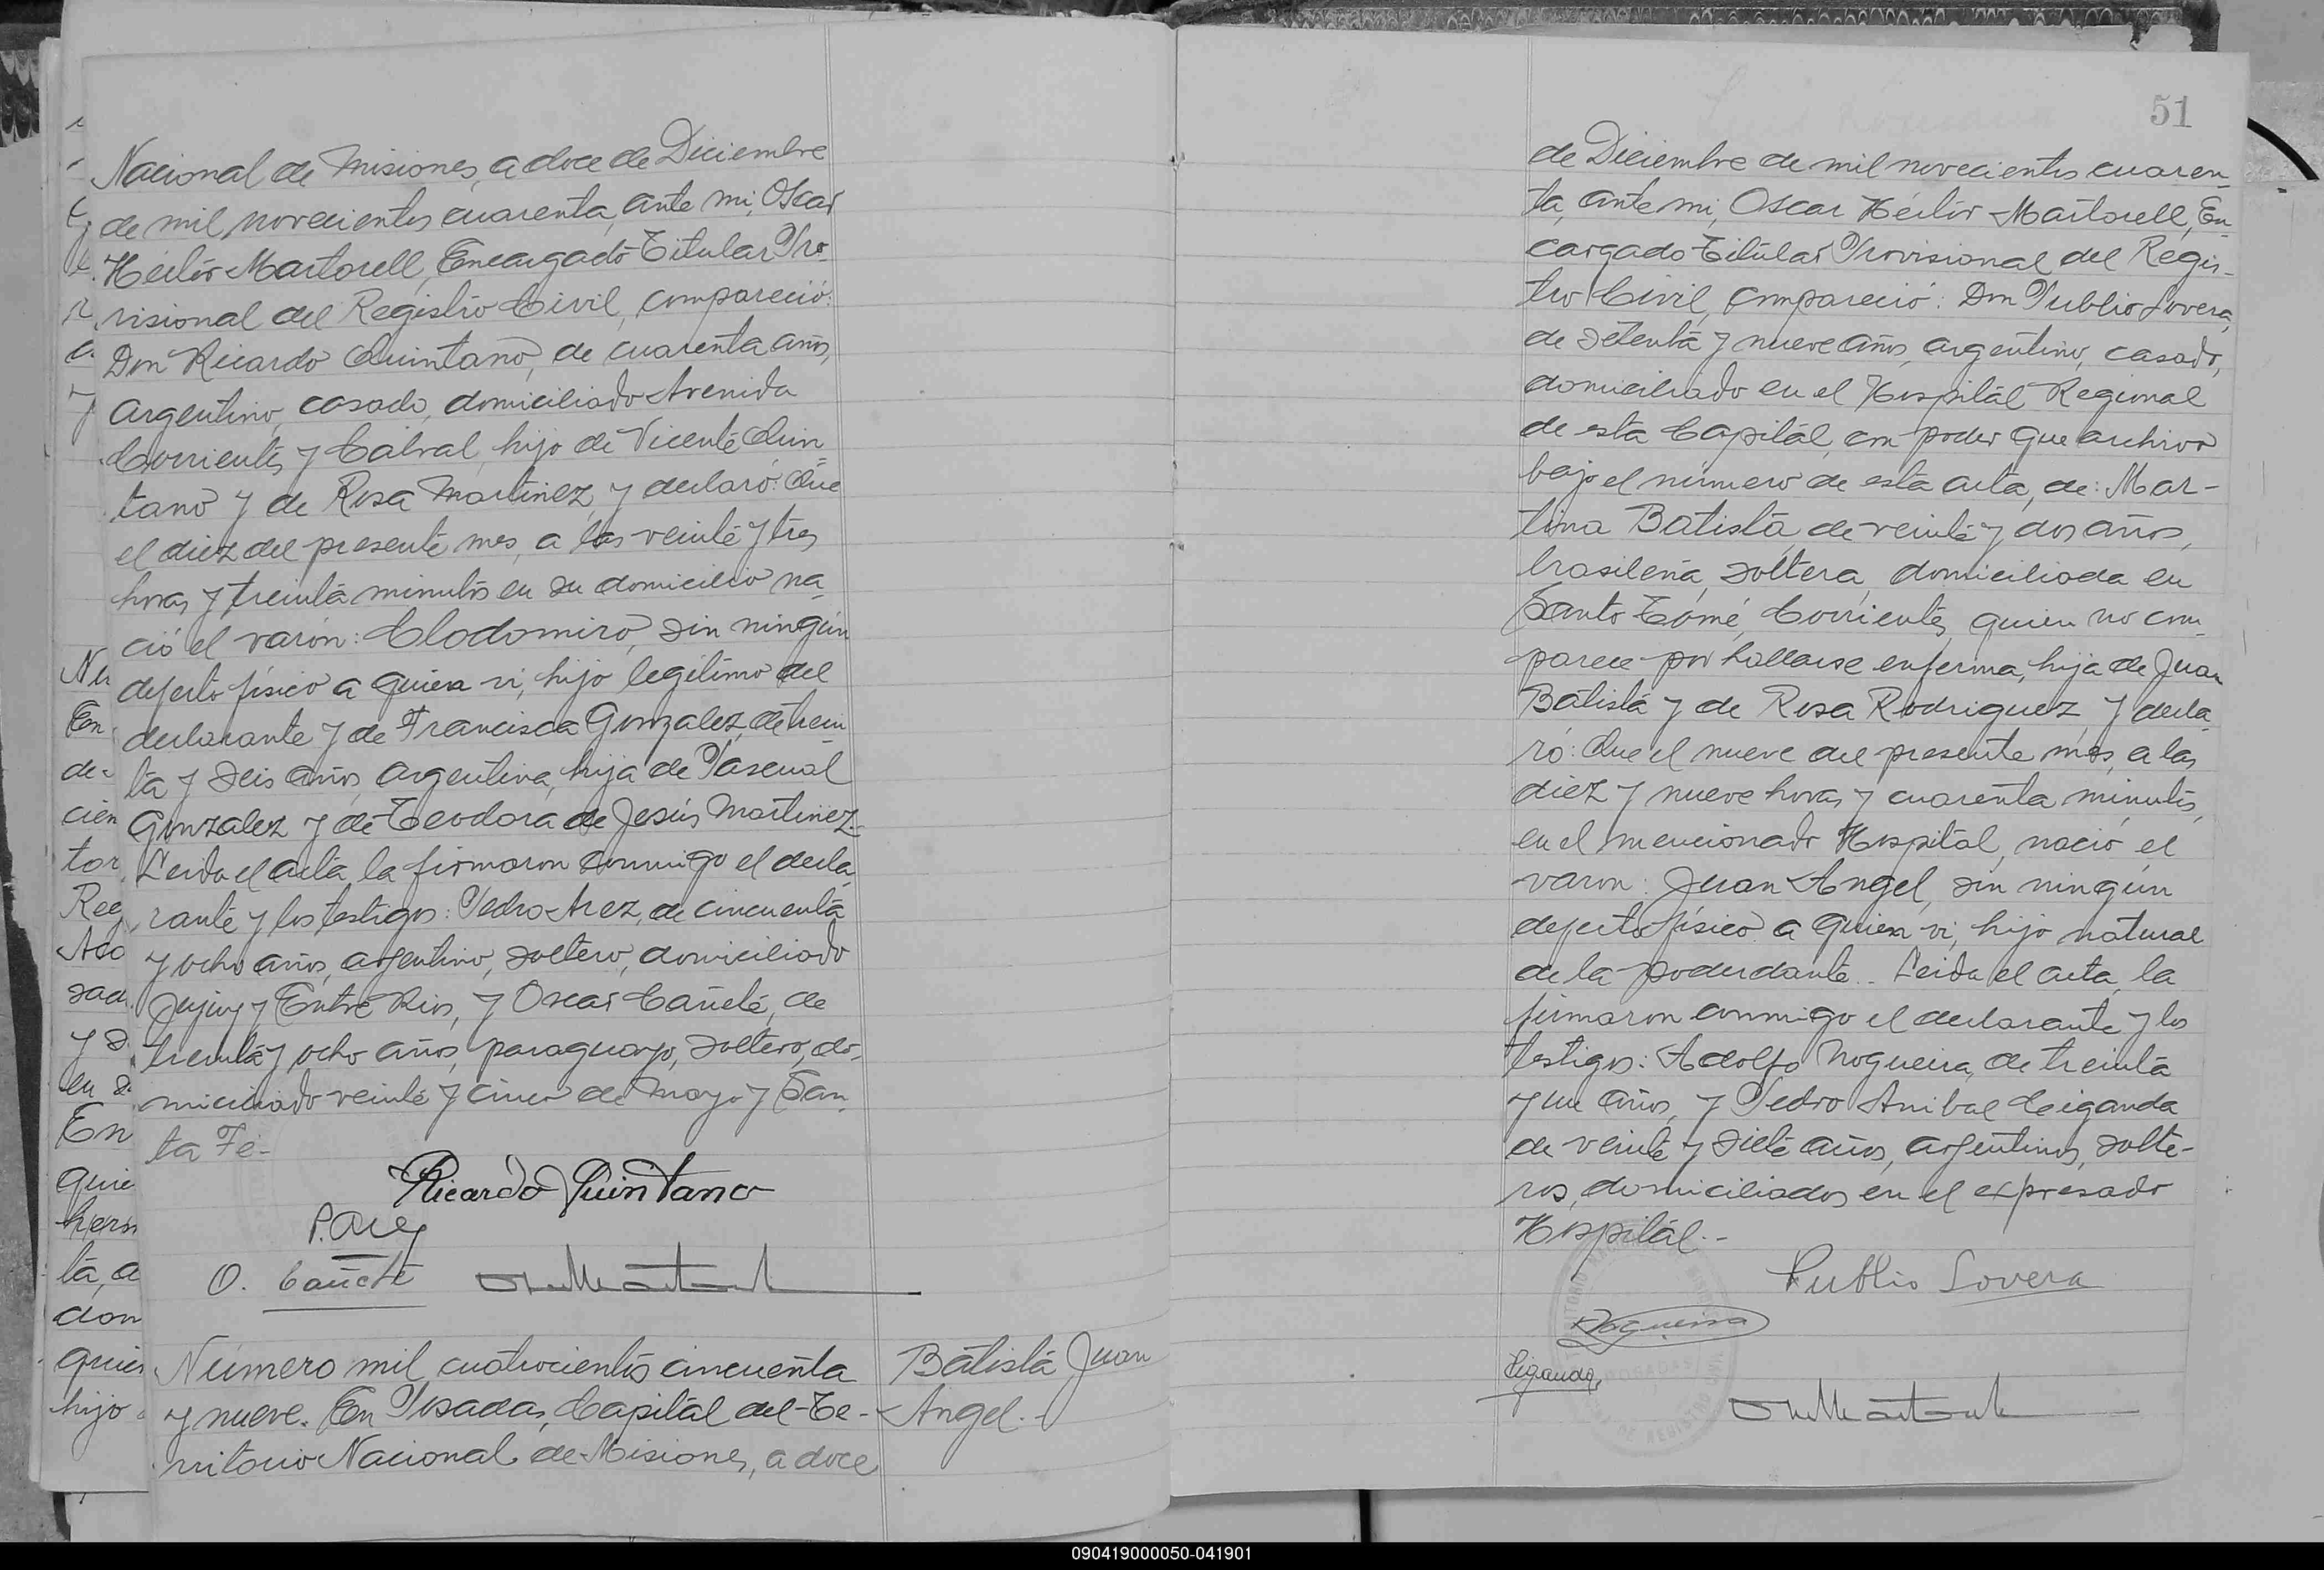 Nacional de Misiones, a doce de Diciembre
de mil novecientos cuarenta, ante mi, Oscar
Héctor Martorell, Encargado Titular Pro-
visional del Registro Civil, compareció:
Don Ricardo Quintano, de cuarenta años,
argentino, casado, domiciliado Avenida
Corrientes y Cabral, hijo de Vicente Quin
tano y de Rosa Martinez, y declaró: Que
el diez del presente mes, a las veinte y tres
horas y treinta minutos en su domicilio na-
ció el varón: Clodomiro, sin ningún
defecto físico a quien vi, hijo legítimo del
declarante y de Francisca Gonzalez, de trein-
ta y seis años, argentina, hija de Pascual
Gonzalez y de Teodora de Jesús Martinez.-
Leida el acta, la firmaron conmigo el decla-
rante y los testigos: Pedro Arez, de cincuenta
y ocho años, argentino, soltero, domiciliado
Jujuy y Entre Rios, y Oscar Cañete, de
treinta y ocho años, paraguayo, soltero, do-
miciliado veinte y cinco de Mayo y San-
ta Fé-
Ricardo Quintano
P. Arez
O. Cañete
Número mil cuatrocientos cincuenta
y nueve. En Posadas, Capital del Te-
rritorio Nacional de Misiones, a doce
Batista Juan
Angel.-
51
de Diciembre de mil novecientos cuaren-
ta, ante mi, Oscar Héctor Martorell, En-
cargado Titular Provisional del Regis-
tro Civil, compareció: Don Publio Lovera,
de setenta y nueve años, argentino, casado,
domiciliado en el Hospital Regional
de esta Capital, con poder que archivo
bajo el número de esta acta, de: Mar-
tina Batista de veinte y dos años,
brasileña, soltera, domiciliada en
Santo Tomé, Corrientes, quien no com-
parece por hallarse enferma, hija de Juan
Batista y de Rosa Rodriguez, y decla-
ró: Que el nueve del presente mes, a las
diez y nueve horas y cuarenta minutos,
en el mencionado Hospital, nació el
varon: Juan Angel, sin ningún
defecto físico a quien vi, hijo natural
de la poderdante.- Leida el acta, la
firmaron conmigo el declarante y los
testigos: Adolfo Nogueira, de treinta
y un años, y Pedro Anibal Leiganda
de veinte y siete años, argentinos, solte-
ros, domiciliados en el expresado
Hospital.-
Publio Lovera
Nogueira
090419000050-041901